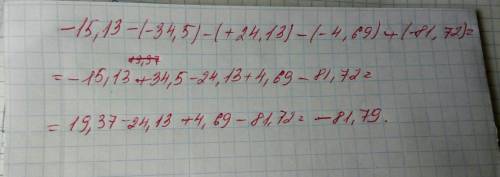 -15,13 -(-34,5) -(+24,13) -(-4,69) +(-81,72)=
19,37
= -15,13 +34,5 -24,13 +4,69 -81,72=
= 19,37 -24,13 +4,69 -81,72 = -81,79.